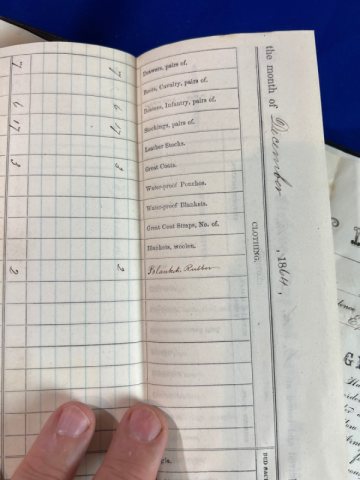 the month of December, 1864,
CLOTHING.
7 7 Drawers, pairs of.
Boots, Cavalry, pairs of.
6 6 Bootees, Infantry, pairs of.
17 17 Stockings, pairs of.
Leather Stocks.
3 3 Great Coats.
Water-proof Ponchos.
Water-proof Blankets.
Great Coat Straps, No. of.
Blankets, woolen.
2 2 Blankets Rubber